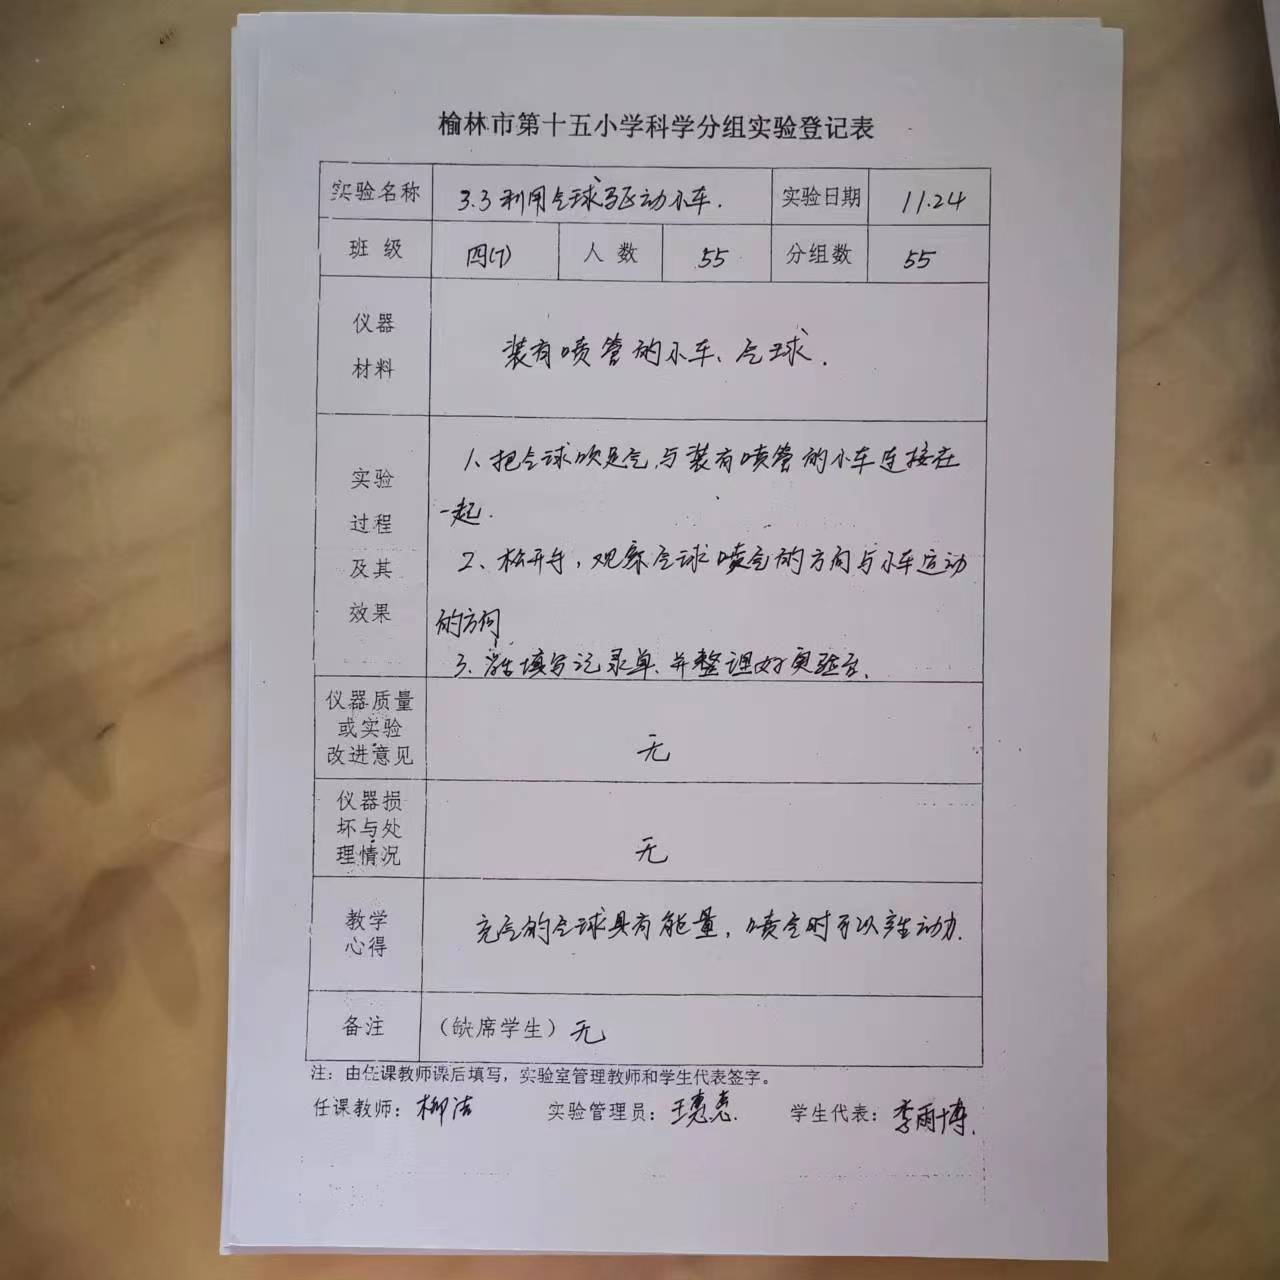 榆林市第十五小学科学分组实验登记表
实验名称 3.3利用气球驱动小车. 实验日期 11.24
班级 四(7) 人数 55 分组数 55
仪器
材料
装有喷管的小车、气球.
实验
过程
及其
效果
1、把气球吹足气,与装有喷管的小车连接在
一起.
2、松开手,观察气球喷气的方向与小车运动
的方向
3、学生填写记录单、并整理好实验台.
仪器质量
或实验
改进意见
无
仪器损
坏与处
理情况
无
教学
心得
充气的气球具有能量,喷气时可以产生动力.
备注 (缺席学生) 无
注:由任课教师课后填写,实验室管理教师和学生代表签字。
任课教师:柳洁 实验管理员:王惠惠. 学生代表:李雨博.